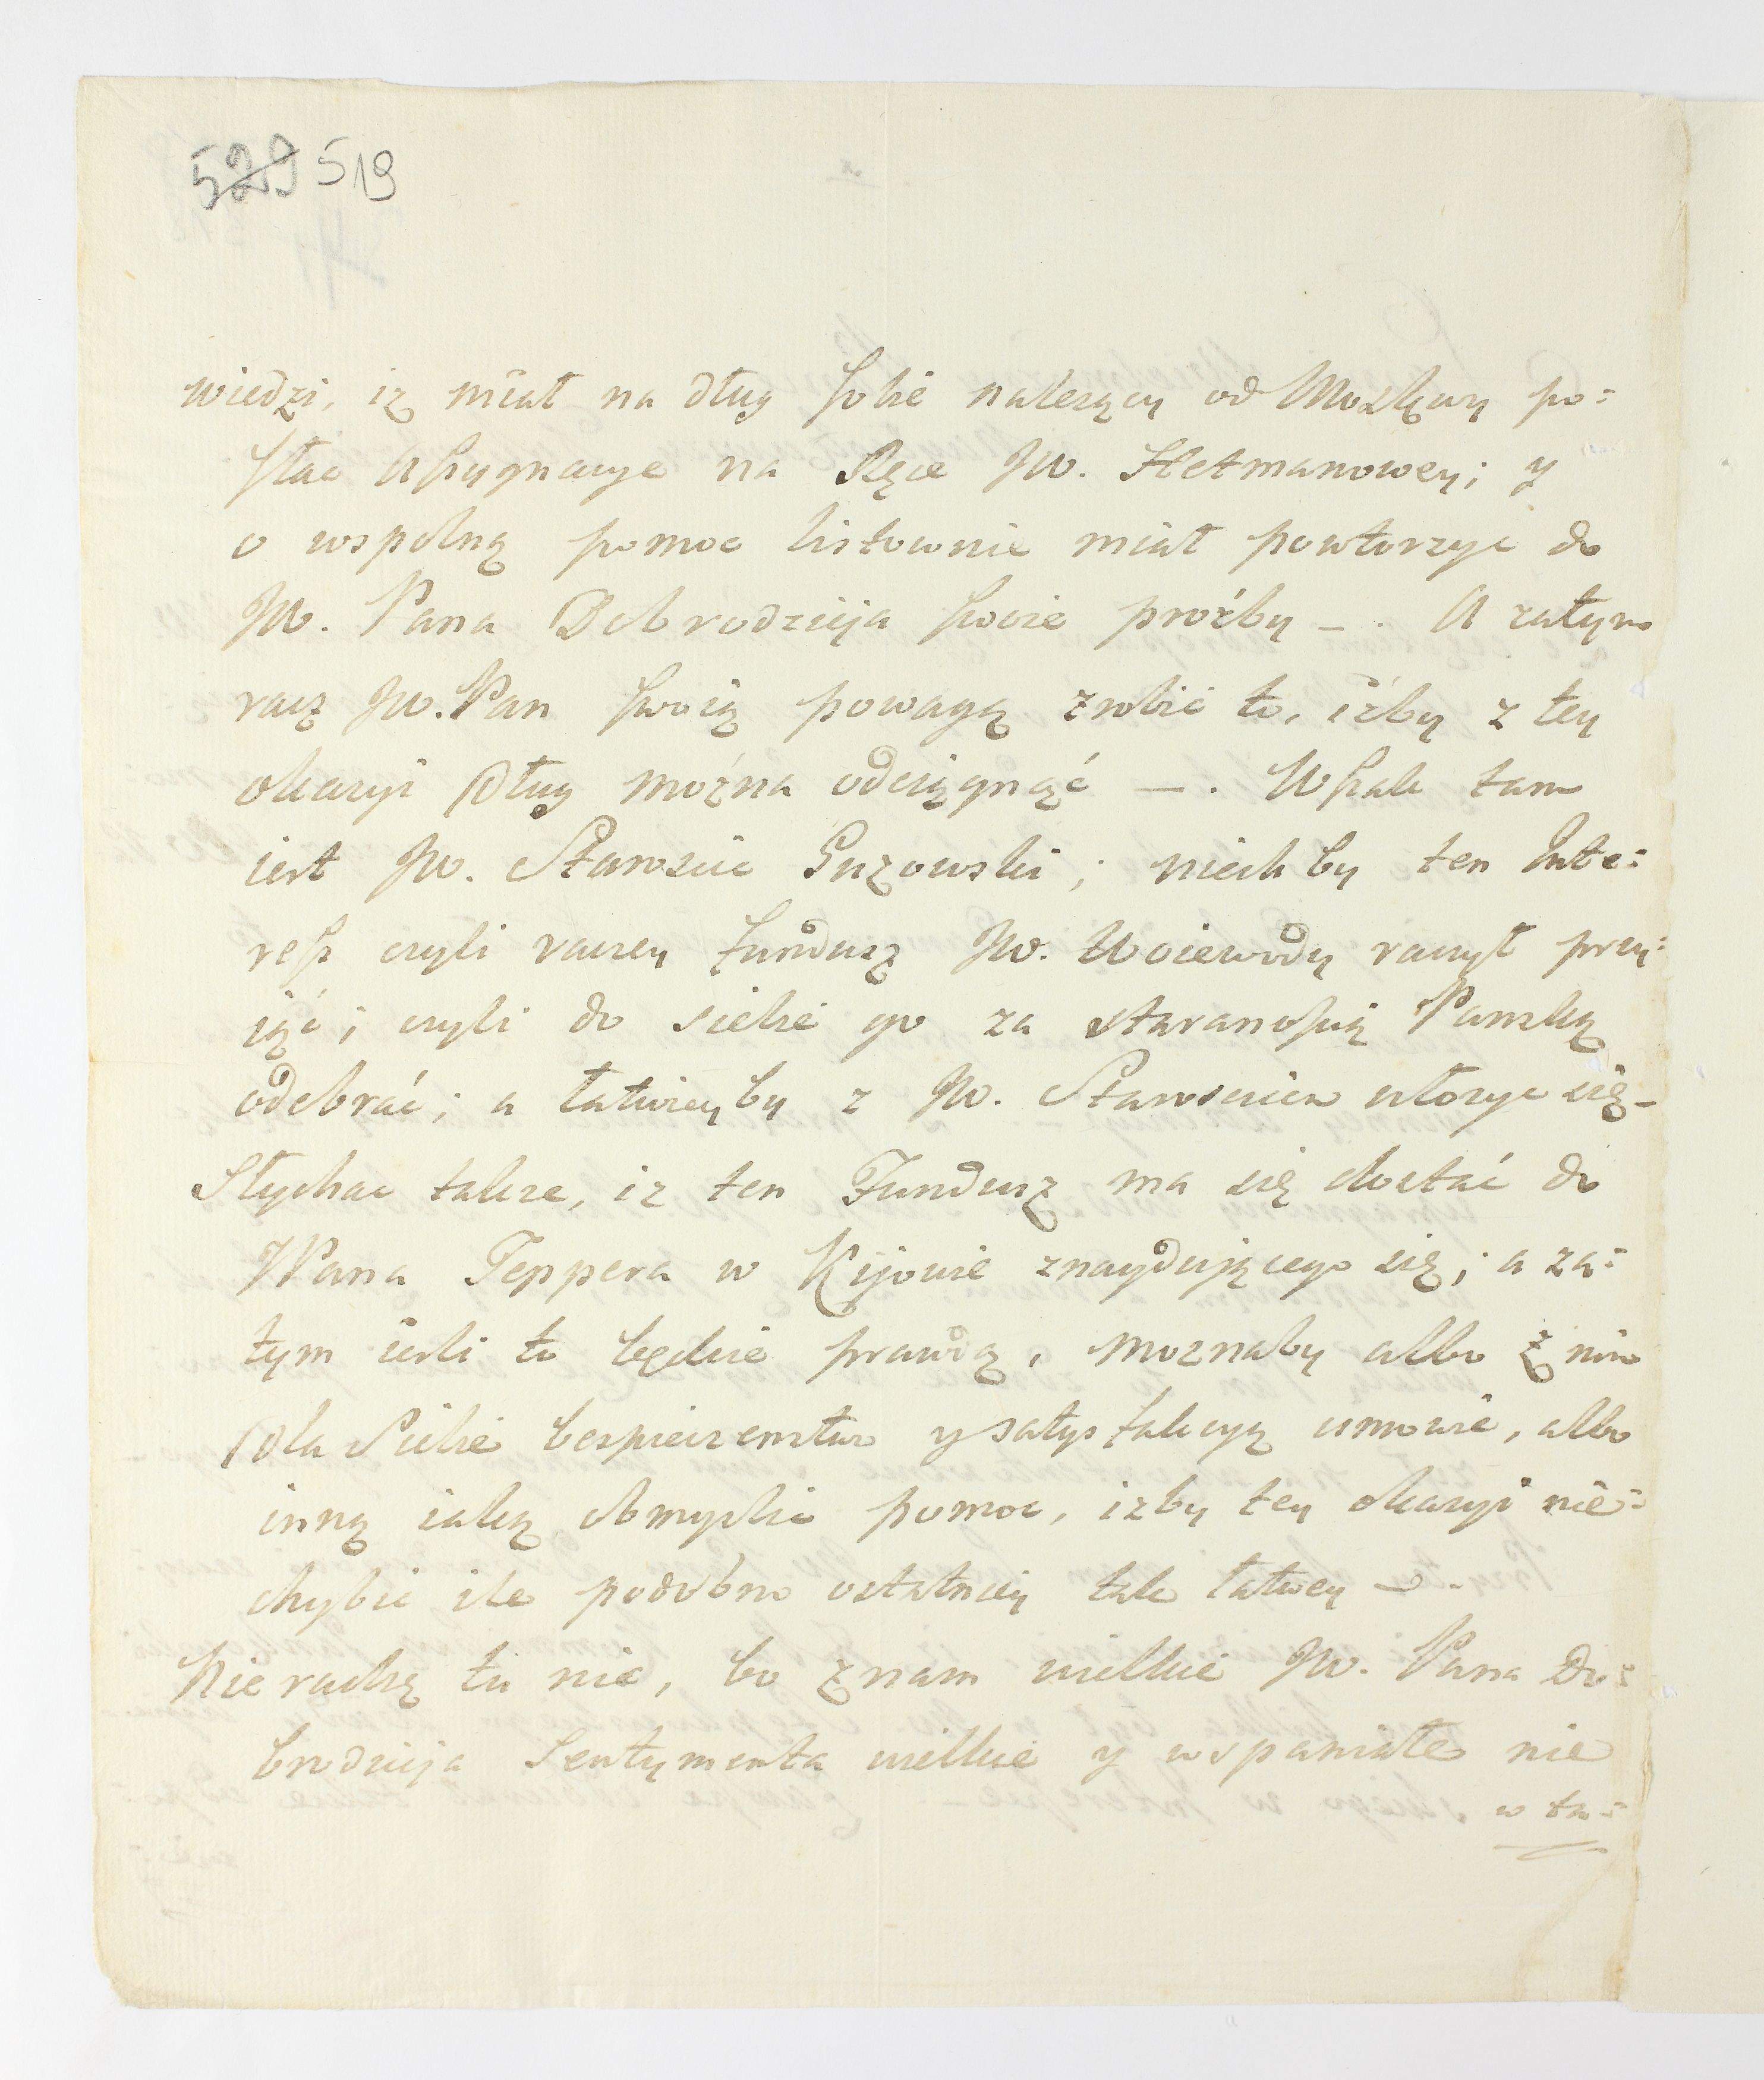 529 519
wiedzi, iz miał na dług sobie nalezący od Moskwy po:
słac Assygnacye na Ręce JW. Hetmanowey; y
o wspolną pomoc listownie miał powtorzyc do
JW. Pana Dobrodzieja swoie proźby _ . A zatym
racz JW. Pan swoią powagą zrobic to, iżby z tey
okazyi dług można odciągnąć — . Wszak tam
iest JW. Staroscic Guzowski; niech by ten Inte:
ress czyli raczey fundusz JW. Woiewody raczył przy:
iąć; czyli do siebie go za starannością Panską
odebrać; a łatwieyby z JW. Staroscicem ułozyc się _
Słychac takze, iz ten Fundusz ma się dostać do
JPana Teppera w Kijowie znayduiącego się; a za:
tym iesli to będzie prawdą, moznaby albo z nim
dla Siebie bespieczenstwo y satysfakcyą umowic, albo
inną iaką obmyslic pomoc, izby tey okazyi nie:
chybic ile podobno ostatniey tak łatwey — .
Nie radzę tu nic, bo znam wielkie JW. Pana Do:
brodzieja Sentymenta wielkie y wspaniałe nie
w ta: